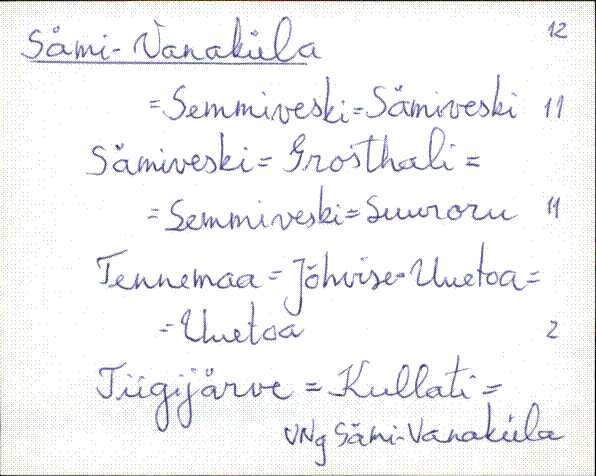 Sämi-Vanaküla 12
=Semmiveski=Sämiveski 11
Sämiveski=Grosthali=
=Semmiveski=Suuroru 11
Tennemaa=Jõhvise-Uuetoa=
=Uuetoa 2
Tiigijärve=Kullati=
VNg Sämi-Vanaküla